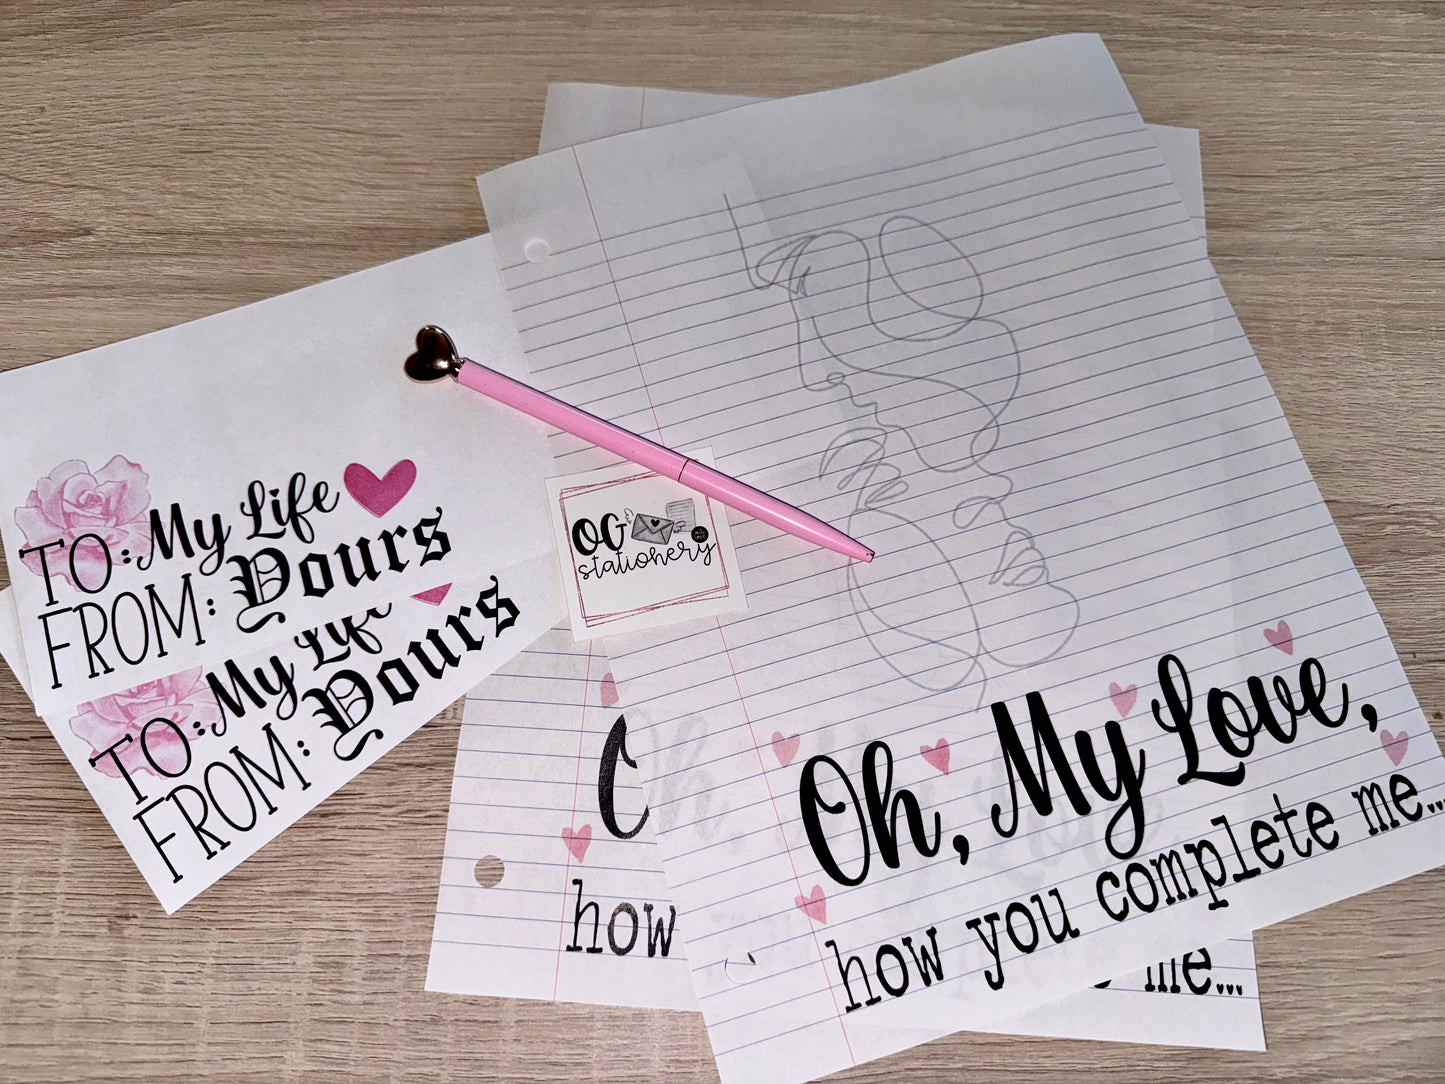 TO: My Life
FROM: Yours
TO: My Life
FROM: Yours
OG
stationery
Oh, My Love,
how you complete me...
how
me...